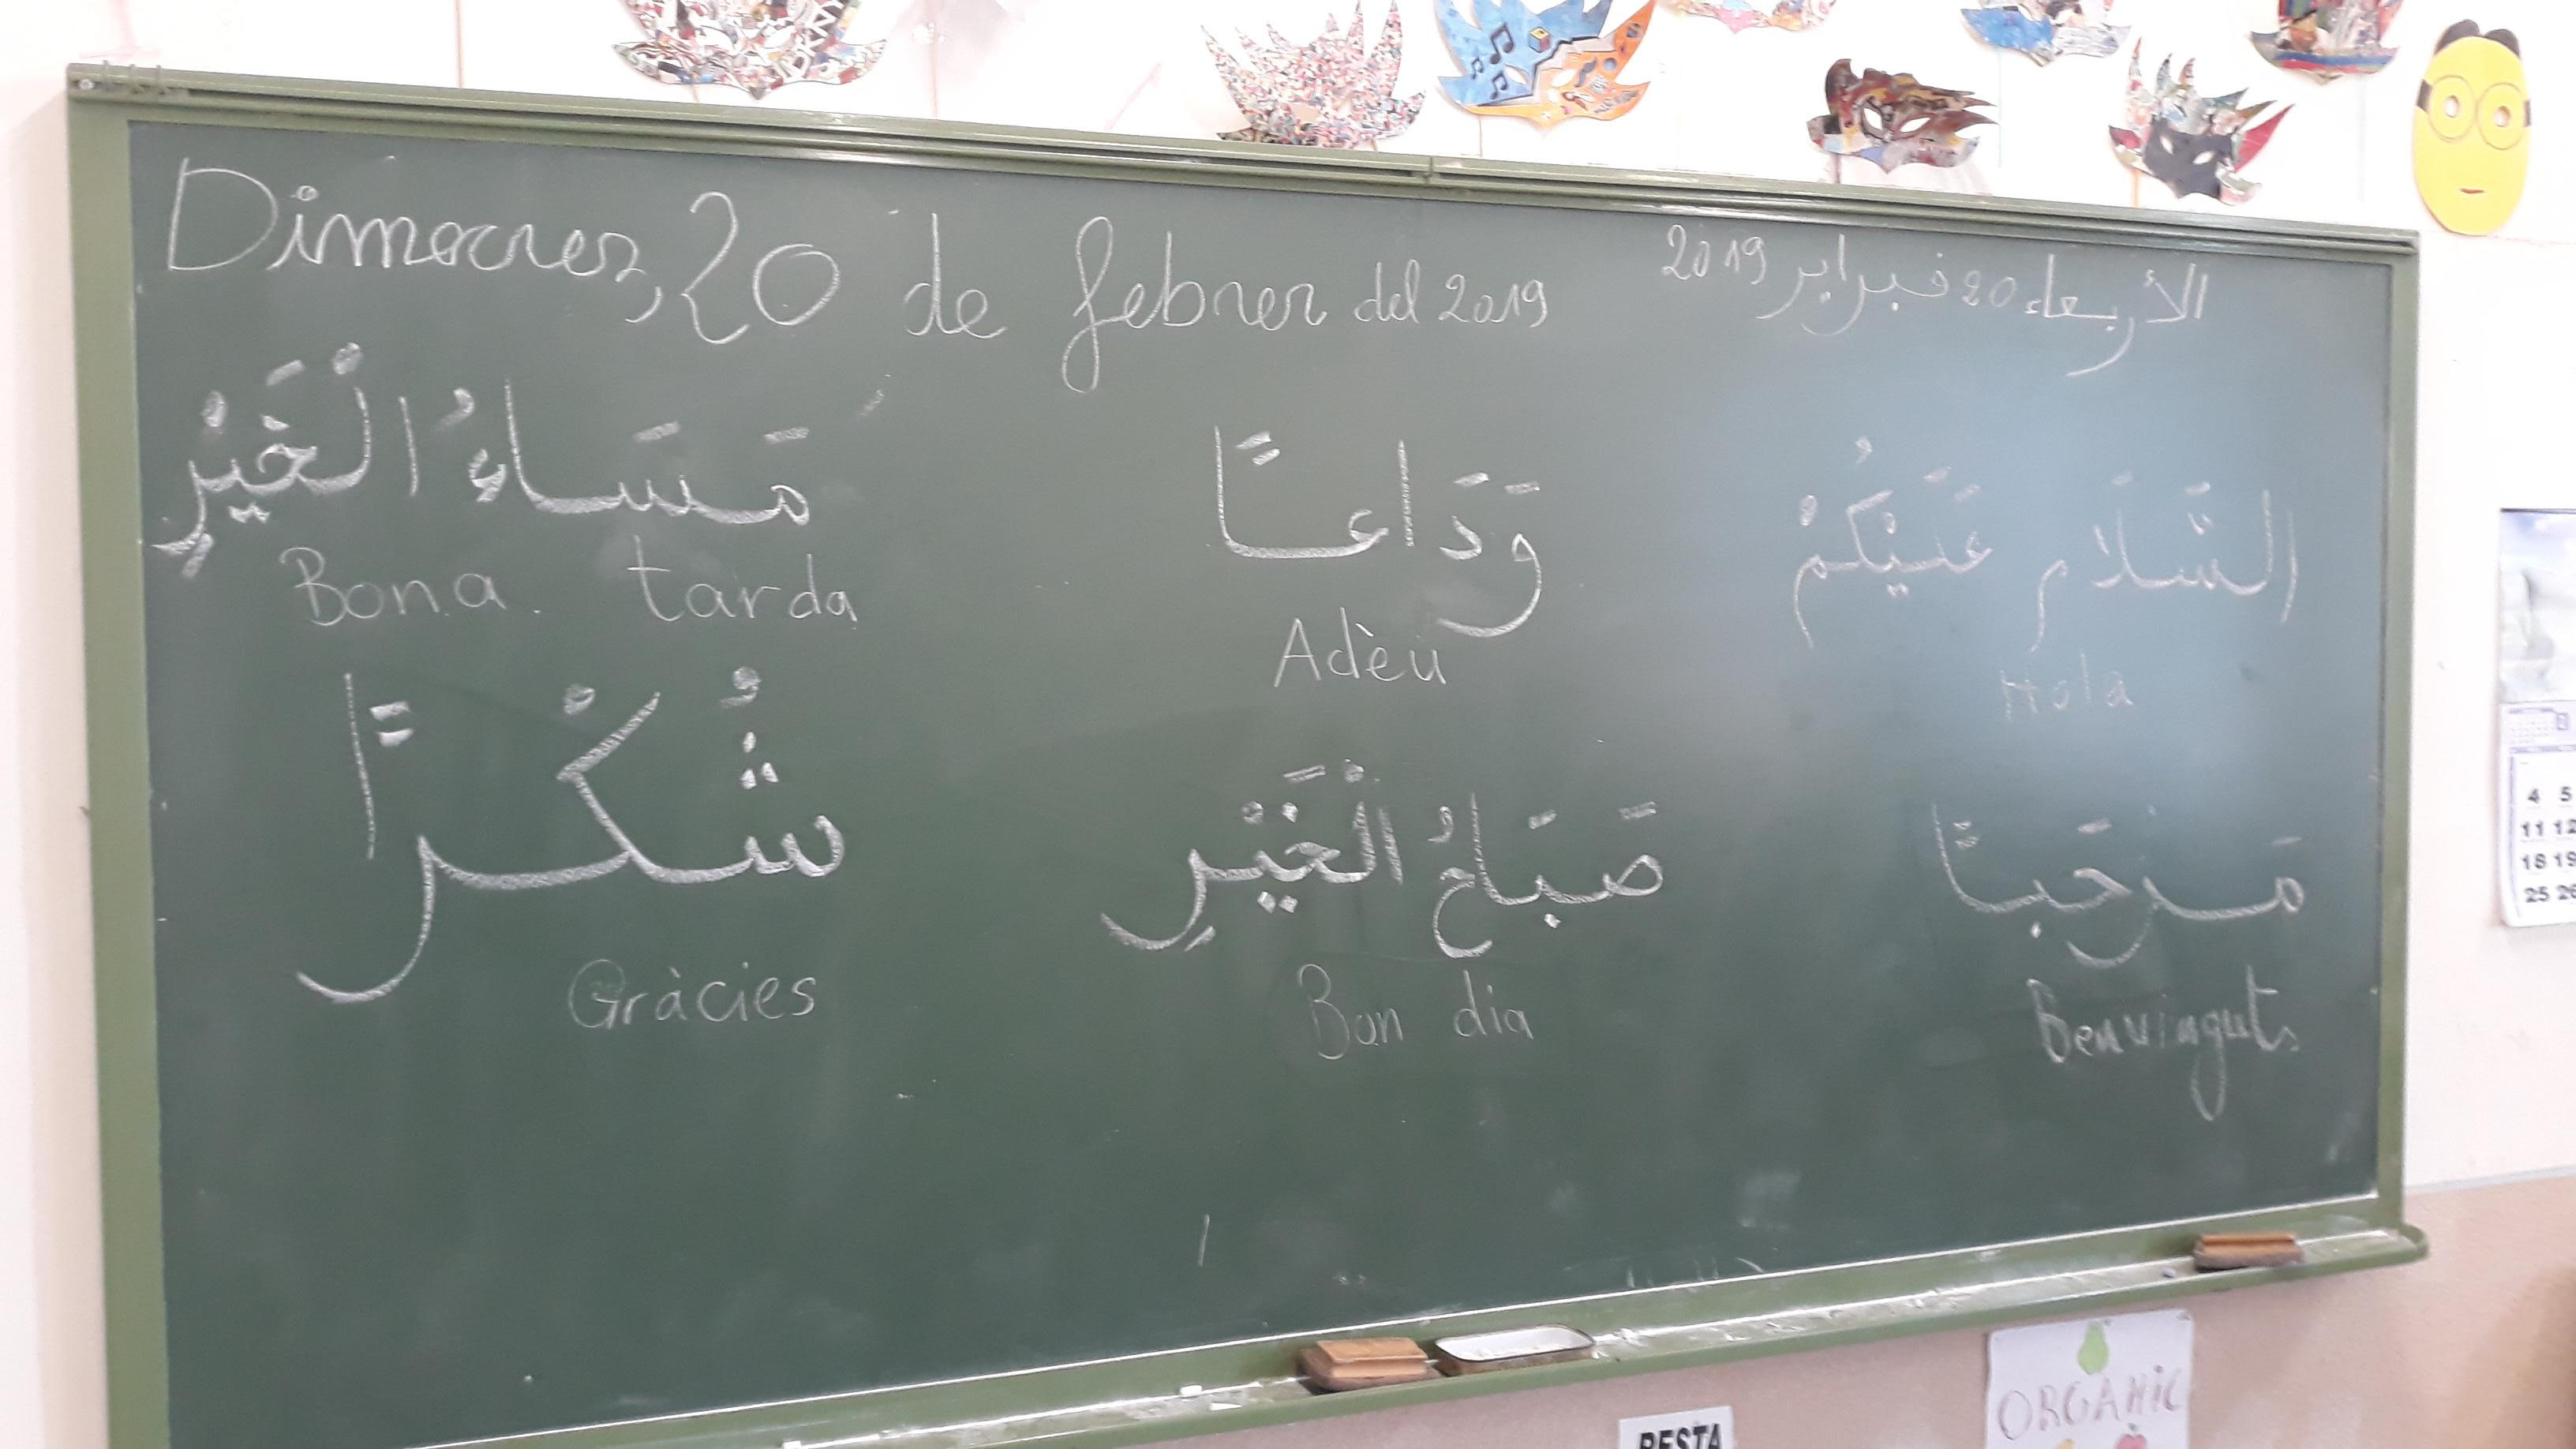 Dimecres, 20 de febrer del 2019
الأربعاء 20 فبراير 2019
مَسَاءُ الْخَيْرِ
Bona tarda
وَدَاعًا
Adèu
السَّلَام عَلَيْكُمْ
Hola
شُكْرًا
Gràcies
صَبَاحُ الْخَيْرِ
Bon dia
مَرْحَبًا
Benvinguts
4 5
11 12
18 19
25 26
RESTA
ORGANIC